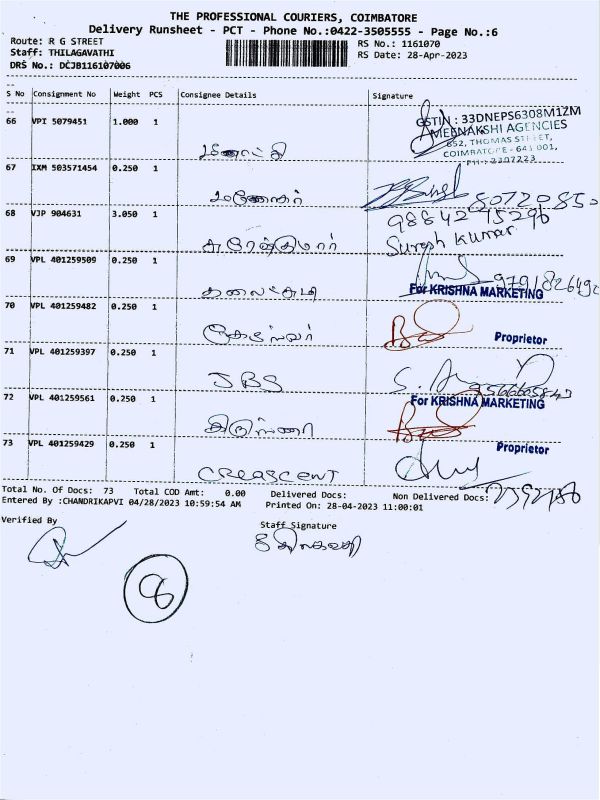 THE PROFESSIONAL COURIERS, COIMBATORE
Delivery Runsheet - PCT - Phone No.:0422-3505555 - Page No.:6
Route: R G STREET
RS No.: 1161070
Staff: THILAGAVATHI
RS Date: 28-Apr-2023
DRS No.: DCJB116107006
S No Consignment No Weight PCS Consignee Details Signature
66 VPI 5079451 1.000 1
GSTIN : 33DNEPS6308M1ZM
MEENAKSHI AGENCIES
852, THOMAS STREET,
COIMBATORE - 641 001,
மீனாட்சி
67 IXM 503571454 0.250 1
மனோகர்
68 VJP 904631 3.050 1
98642 75296
சுரேஷ்குமார் Suresh Kumar
69 VPL 401259509 0.250 1
9791826492
For KRISHNA MARKETING
70 VPL 401259482 0.250 1
Proprietor
71 VPL 401259397 0.250 1
JBS
72 VPL 401259561 0.250 1
For KRISHNA MARKETING
Proprietor
73 VPL 401259429 0.250 1
CREASCENT
Total No. Of Docs: 73 Total COD Amt: 0.00 Delivered Docs: Non Delivered Docs:
Entered By :CHANDRIKAPVI 04/28/2023 10:59:54 AM Printed On: 28-04-2023 11:00:01
Verified By
Staff Signature
திலகவதி
8